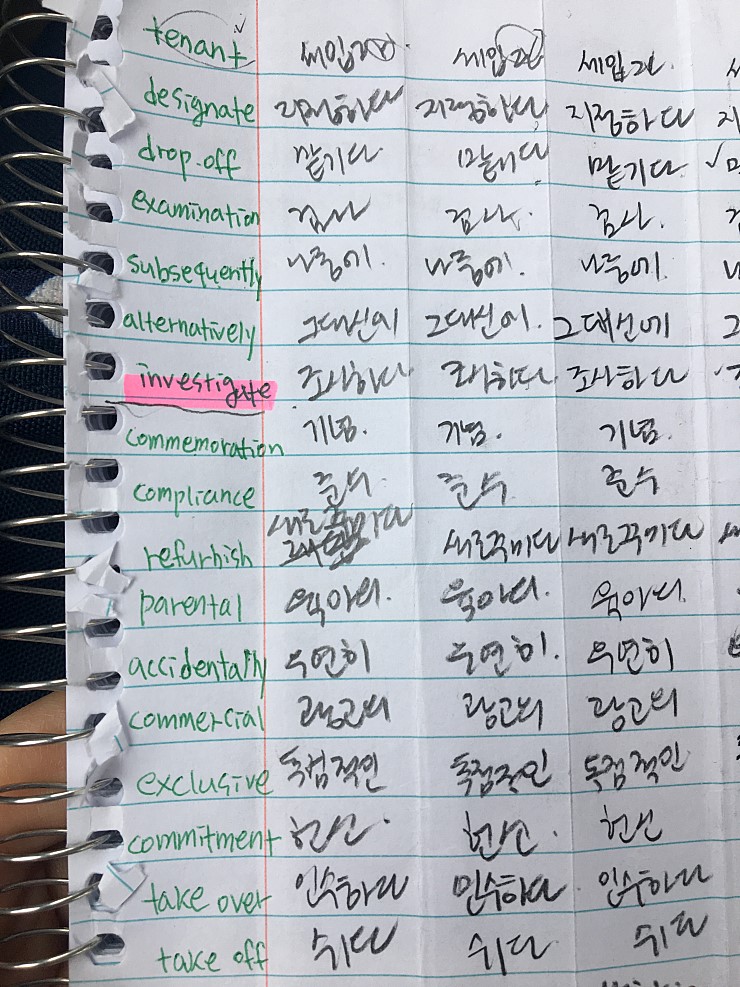 tenant 세입자 세입자 세입자 세
designate 지정하다 지정하다 지정하다 지
drop-off 맡기다 맡기다 맡기다
examination 검사 검사. 검사.
subsequently 나중에. 나중에. 나중에.
alternatively 그대신에 그대신에. 그대신에 그
investigate 조사하다 조사하다. 조사하다
commemoration 기념. 기념. 기념.
compliance 준수. 준수 준수
refurbish 새로꾸미다 새로꾸미다 새로꾸미다
parental 육아의. 육아의. 육아의.
accidentally 우연히 우연히. 우연히
commercial 광고의 광고의 광고의
exclusive 독점적인 독점적인 독점적인
commitment 헌신. 헌신. 헌신
take over 인수하다 인수하다. 인수하다
take off 쉬다 쉬다. 쉬다